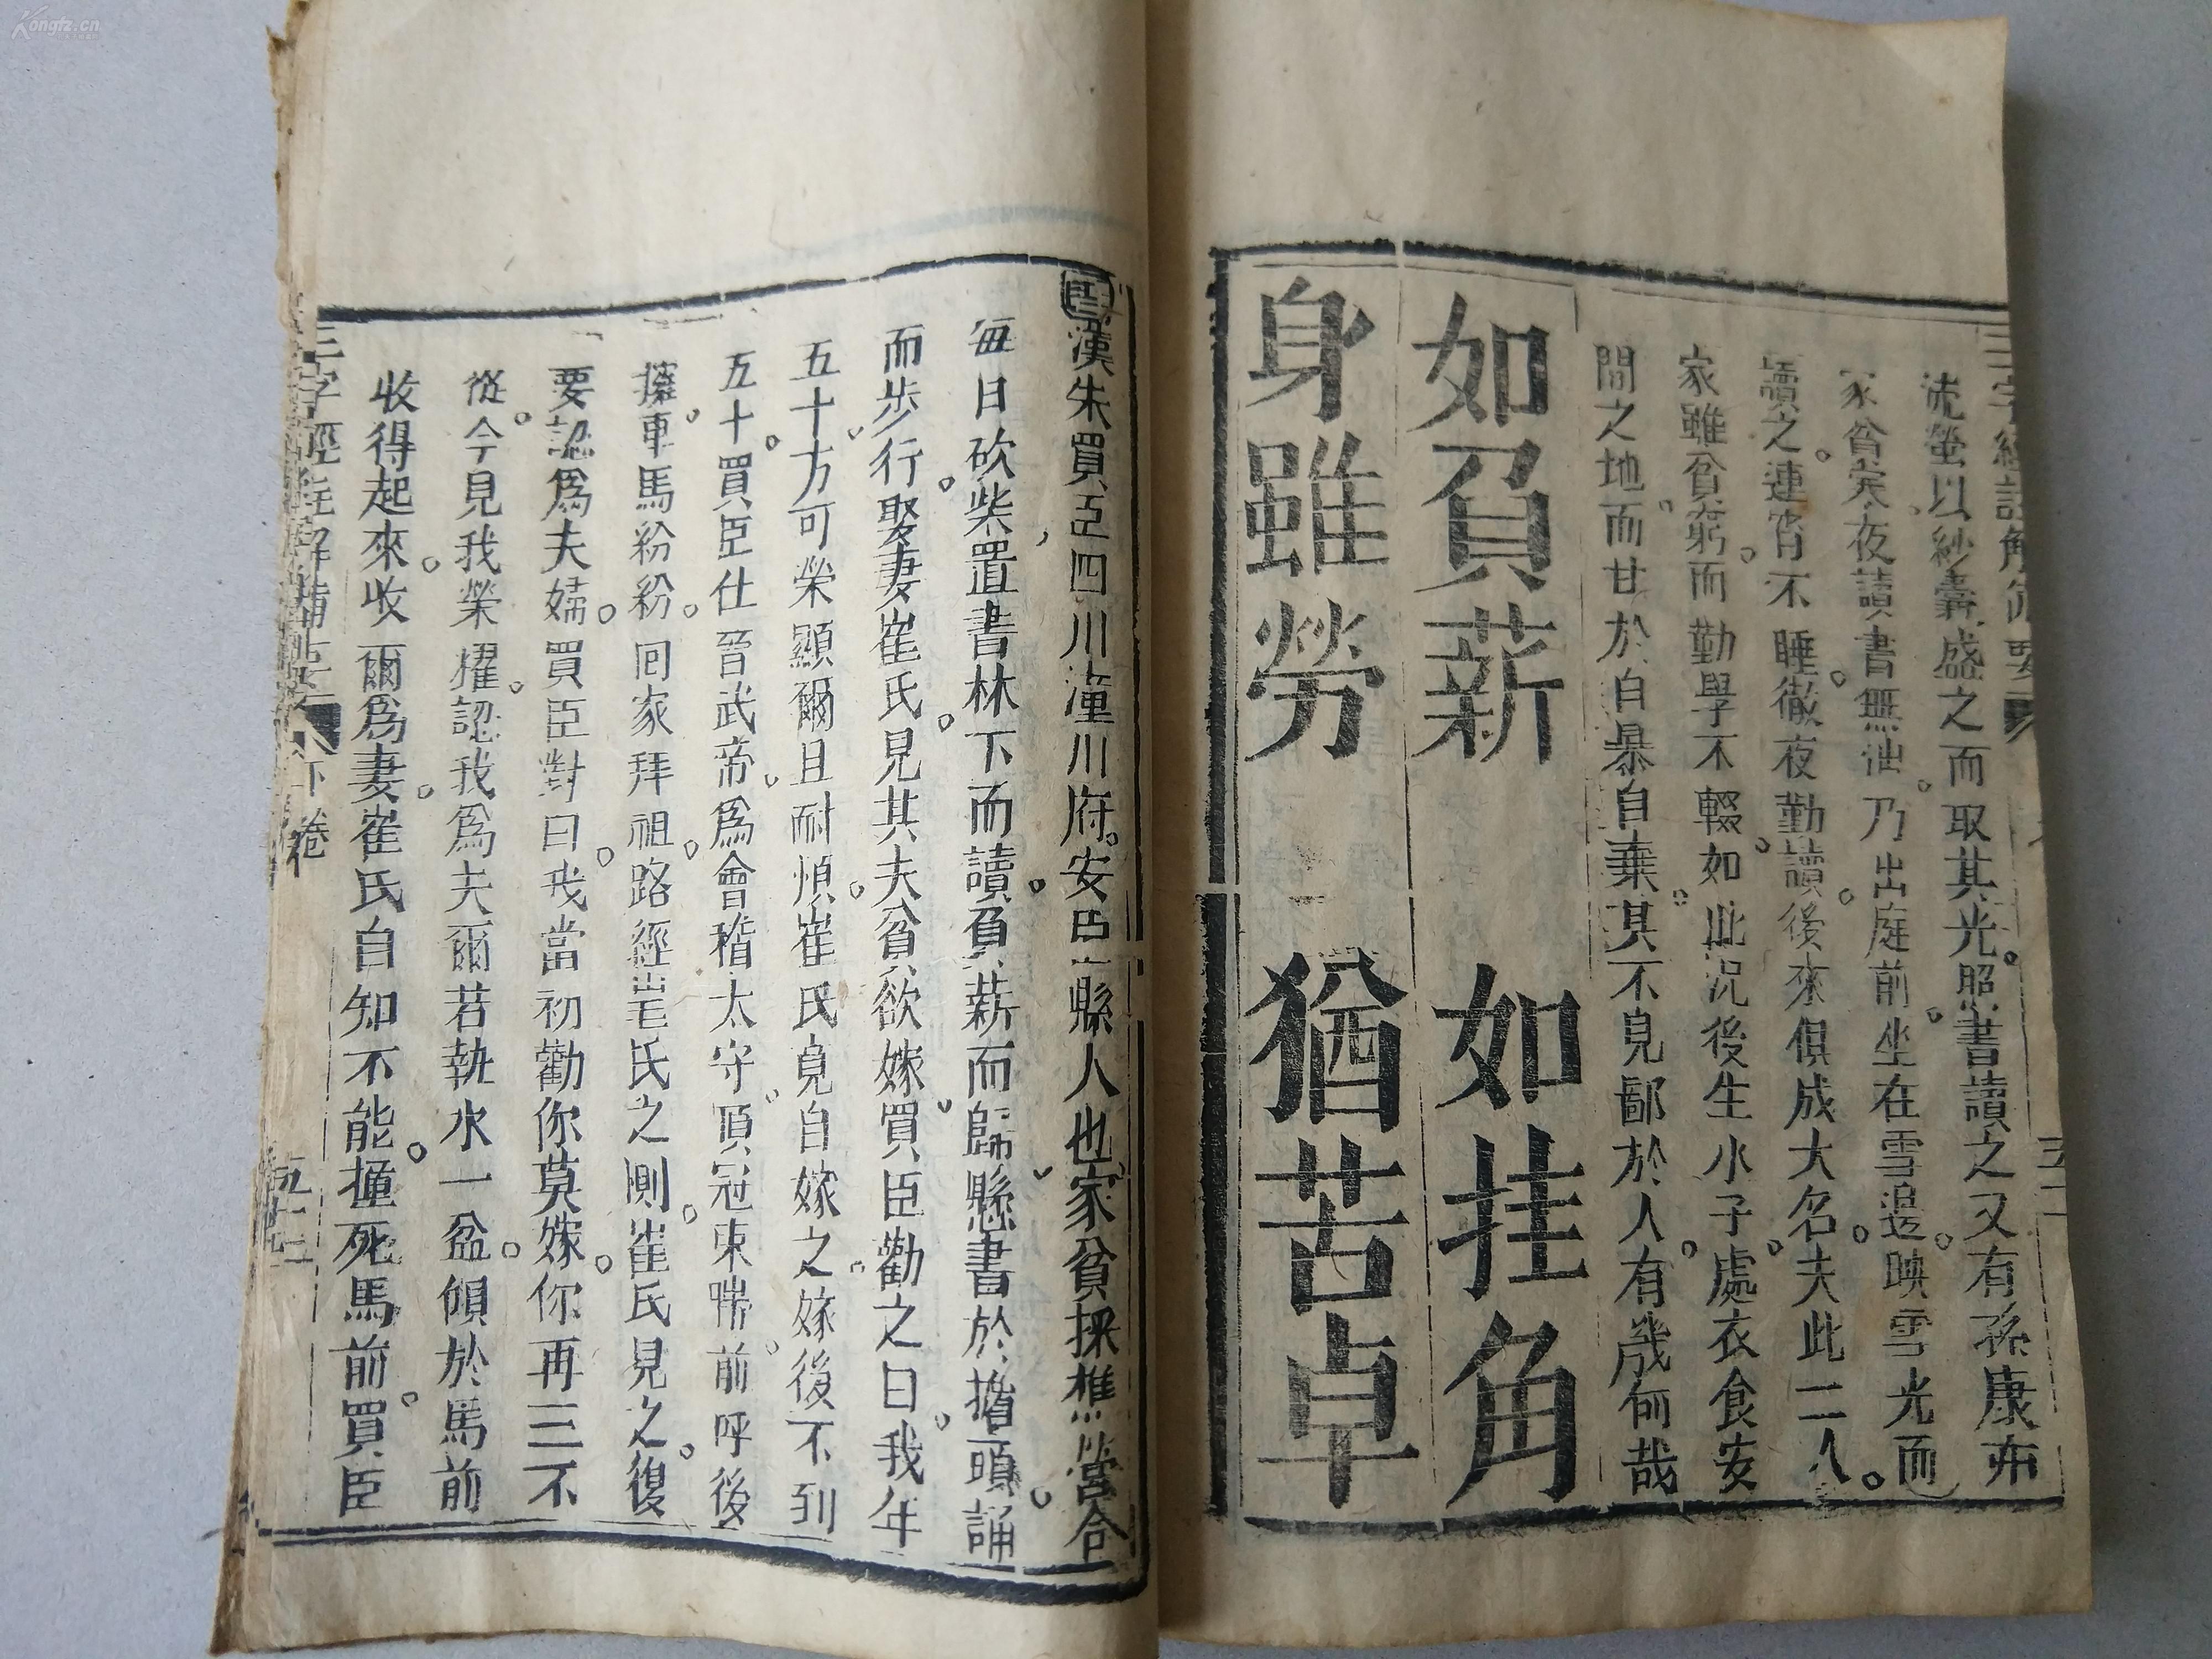 三字經註解備要
流螢以紗囊盛之而取其光照書讀之又有孫康亦
家貧矣夜讀書無油乃出庭前坐在雪邊映雪光而
讀之連宵不睡徹夜勤讀後來俱成大名夫此二人
家雖貧窮而勤學不輟如此況後生小子處衣食安
閒之地而甘於自暴自棄其不見鄙於人有幾何哉
如負薪 如挂角
身雖勞 猶苦卓
漢朱買臣四川潼川府安岳縣人也家貧採樵營食
每日砍柴置書林下而讀負薪而歸懸書於擔頭誦
而步行娶妻崔氏見其夫貧欲嫁買臣勸之曰我年
五十方可榮顯爾且耐煩崔氏竟自嫁之嫁後不到
五十買臣仕晉武帝為會稽太守頂冠束帶前呼後
擁車馬紛紛回家拜祖路經崔氏之側崔氏見之復
要認為夫婦買臣對曰我當初勸你莫嫁你再三不
從今見我榮耀認我為夫爾若執水一盆傾於馬前
收得起來收爾為妻崔氏自知不能撞死馬前買臣
三字經註解備要 下卷
Kongfz.cn